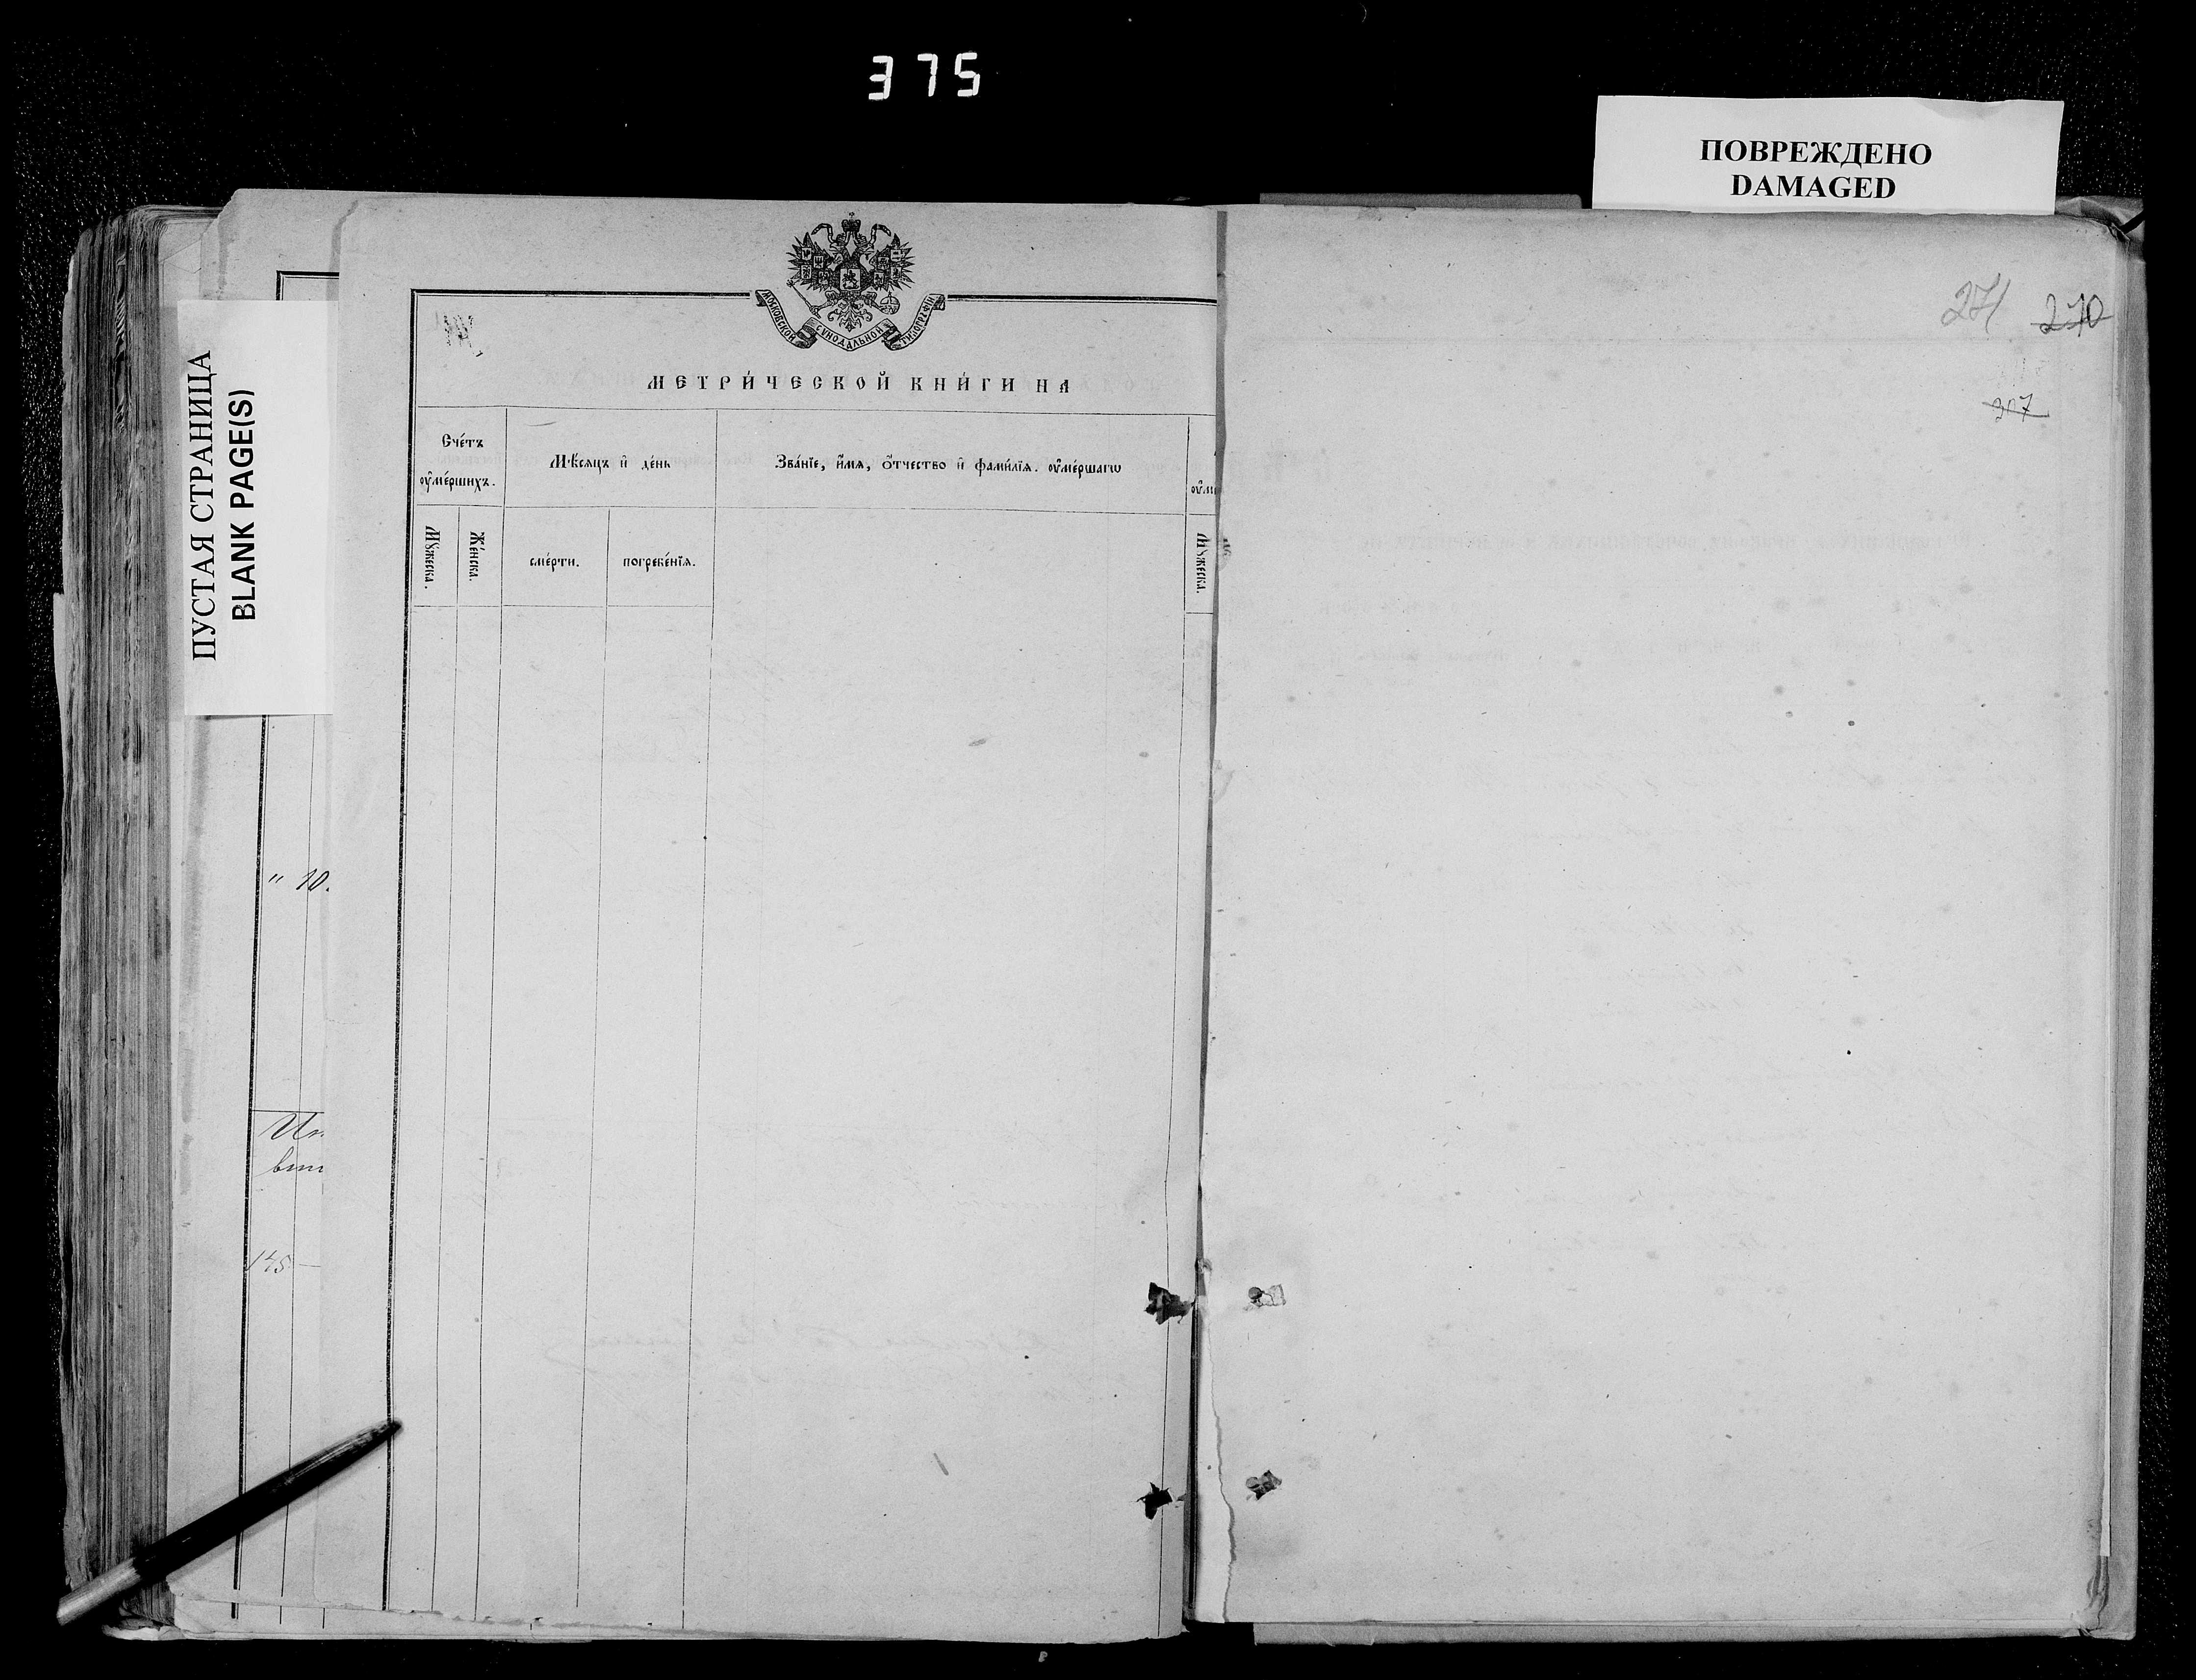 375
ПОВРЕЖДЕНО
DAMAGED
ПУСТАЯ СТРАНИЦА
BLANK PAGE(S)
МОСКОВСКОЙ СУНОДАЛЬНОЙ ТИПОГРАФІИ
МЕТРИ́ЧЕСКОЙ КНИ́ГИ НА
Сче́тъ ᲂу҆ме́ршихъ.
Мѣ́сяцъ и҆ де́нь
Зва́нїе, и҆́мѧ, ѻ҆́тчество и҆ фами́лїѧ ᲂу҆ме́ршагѡ
Мꙋ́жеска.
Же́нска.
сме́рти.
погребе́нїѧ.
Мꙋ́жеска.
271 270
307
" 10.
145 —